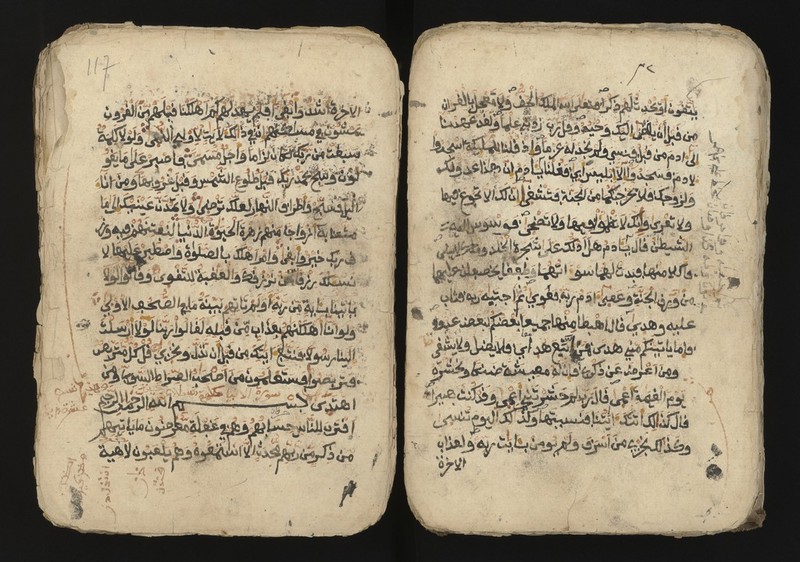 ٣٢
يتقون او يحدث لهم ذكرا فتعلى الله الملك الحق ولا تعجل بالقران
من قبل ان يقضى اليك وحيه وقل رب زدني علما ولقد عهدنا
الى ادم من قبل فنسي ولم نجد له عزما واذ قلنا للمليكة اسجدوا
لادم فسجدوا الا ابليس ابى فقلنا يادم ان هذا عدو لك
ولزوجك فلا يخرجنكما من الجنة فتشقى ان لك الا تجوع فيها
ولا تعرى وانك لا تظموا فيها ولا تضحى فوسوس اليه
الشيطن قال يادم هل ادلك على شجرة الخلد وملك لا يبلى
فاكلا منها فبدت لهما سوءاتهما وطفقا يخصفان عليهما
من ورق الجنة وعصى ادم ربه فغوى ثم اجتبيه ربه فتاب
عليه وهدى قال اهبطا منها جميعا بعضكم لبعض عدو
فاما ياتينكم مني هدى فمن اتبع هداي فلا يضل ولا يشقى
ومن اعرض عن ذكري فان له معيشة ضنكا ونحشره
يوم القيمة اعمى قال رب لم حشرتني اعمى وقد كنت بصيرا
قال كذالك اتتك ايتنا فنسيتها وكذالك اليوم تنسى
وكذالك نجزي من اسرف ولم يومن بايت ربه ولعذاب
الاخرة
117
الاخرة اشد وابقى افلم يهد لهم كم اهلكنا قبلهم من القرون
يمشون في مسكنهم ان في ذالك لايت لاولي النهى ولولا كلمة
سبقت من ربك لكان لزاما واجل مسمى فاصبر على ما يقو
لون وسبح بحمد ربك قبل طلوع الشمس وقبل غروبها ومن اناء
اليل فسبح واطراف النهار لعلك ترضى ولا تمدن عينيك الى ما
متعنا به ازواجا منهم زهرة الحيوة الدنيا لنفتنهم فيه ورز
ق ربك خير وابقى وامر اهلك بالصلوة واصطبر عليها لا
نسئلك رزقا نحن نرزقك والعقبة للتقوى وقالوا لولا
ياتينا باية من ربه اولم تاتهم بينة ما في الصحف الاولى
ولو انا اهلكنهم بعذاب من قبله لقالوا ربنا لولا ارسلت
الينا رسولا فنتبع ايتك من قبل ان نذل ونخزى قل كل متربص
فتربصوا فستعلمون من اصحب الصراط السوي ومن
اهتدى بسم الله الرحمن الرحيم
اقترب للناس حسابهم وهم في غفلة معرضون ما ياتيهم
من ذكر من ربهم محدث الا استمعوه وهم يلعبون لاهية